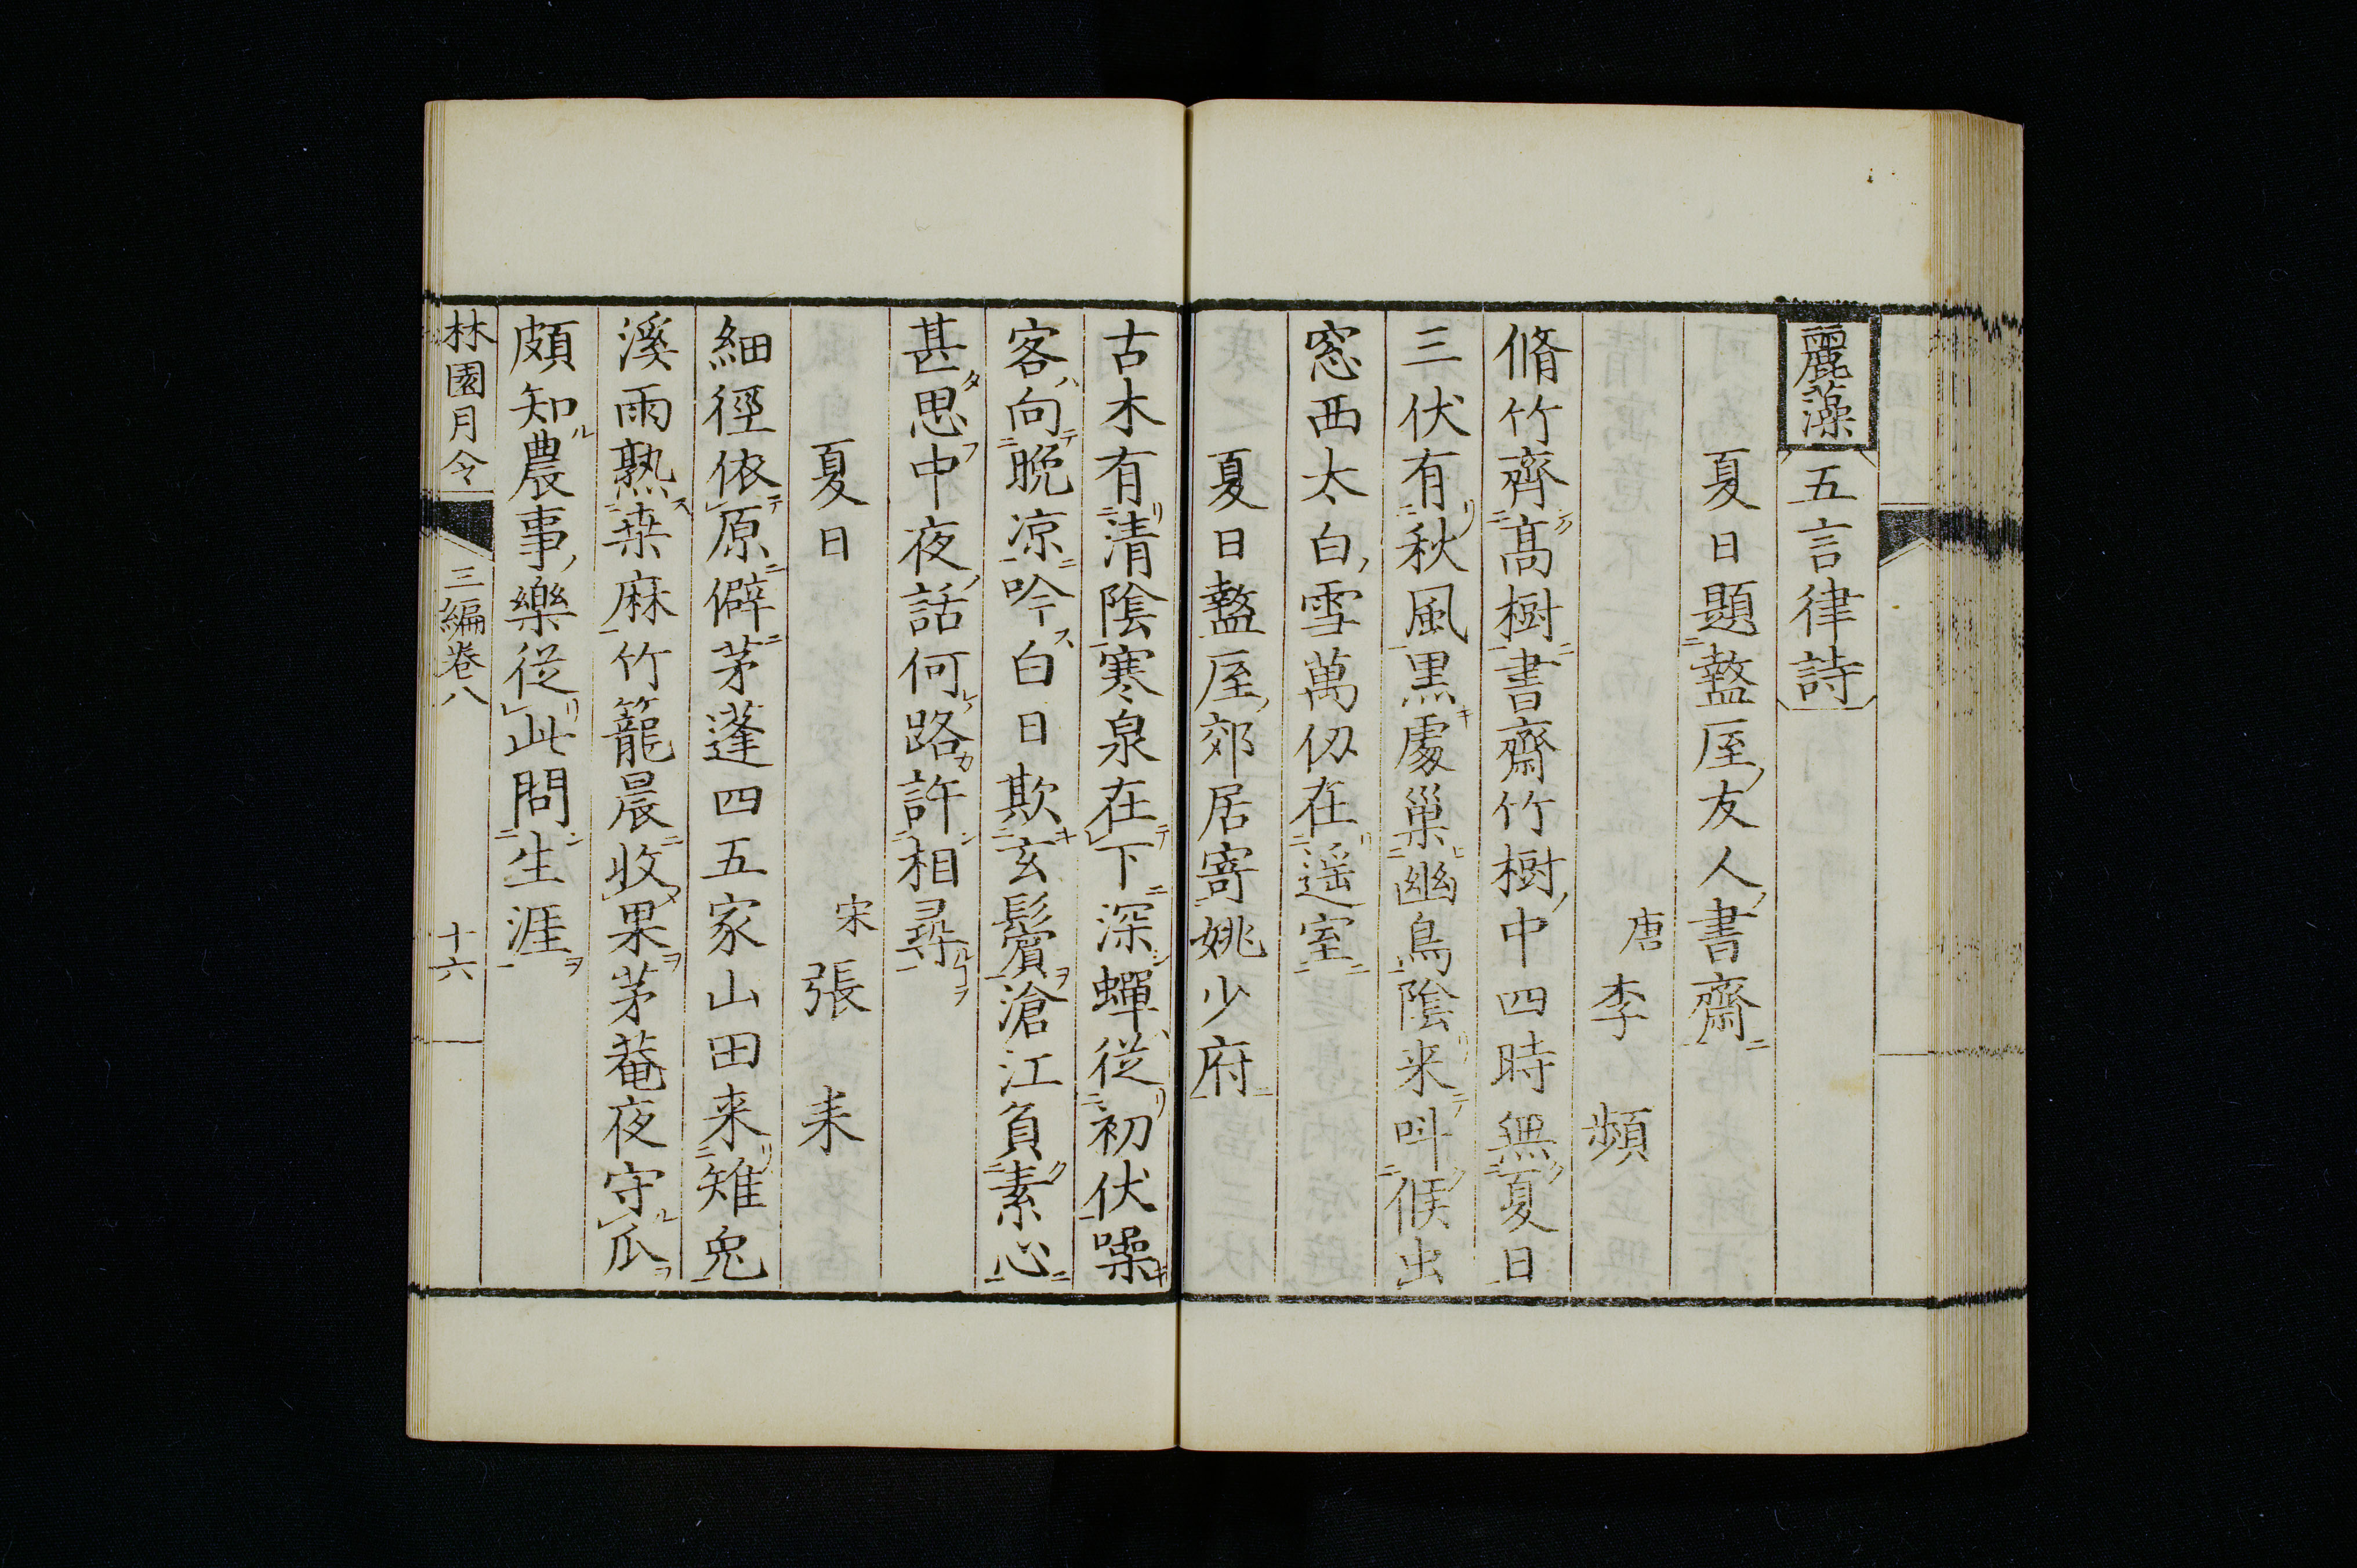 麗藻 五言律詩
夏日題盩厔友人書齋
唐 李 頻
脩竹齊高樹書齋竹樹中四時無夏日
三伏有秋風黒處巢幽鳥陰来呌候虫
窓西太白雪萬仭在遥室
夏日盩厔郊居寄姚少府
古木有清陰寒泉在下深蟬従初伏噪
客向晩凉吟白日欺玄鬢滄江負素心
甚思中夜話何路許相尋
夏日
宋 張 耒
細徑依原僻茅蓬四五家山田来雉兔
溪雨熟桒麻竹籠晨收果茅菴夜守瓜
頗知農事樂従此問生涯
林園月令 三編卷八 十六